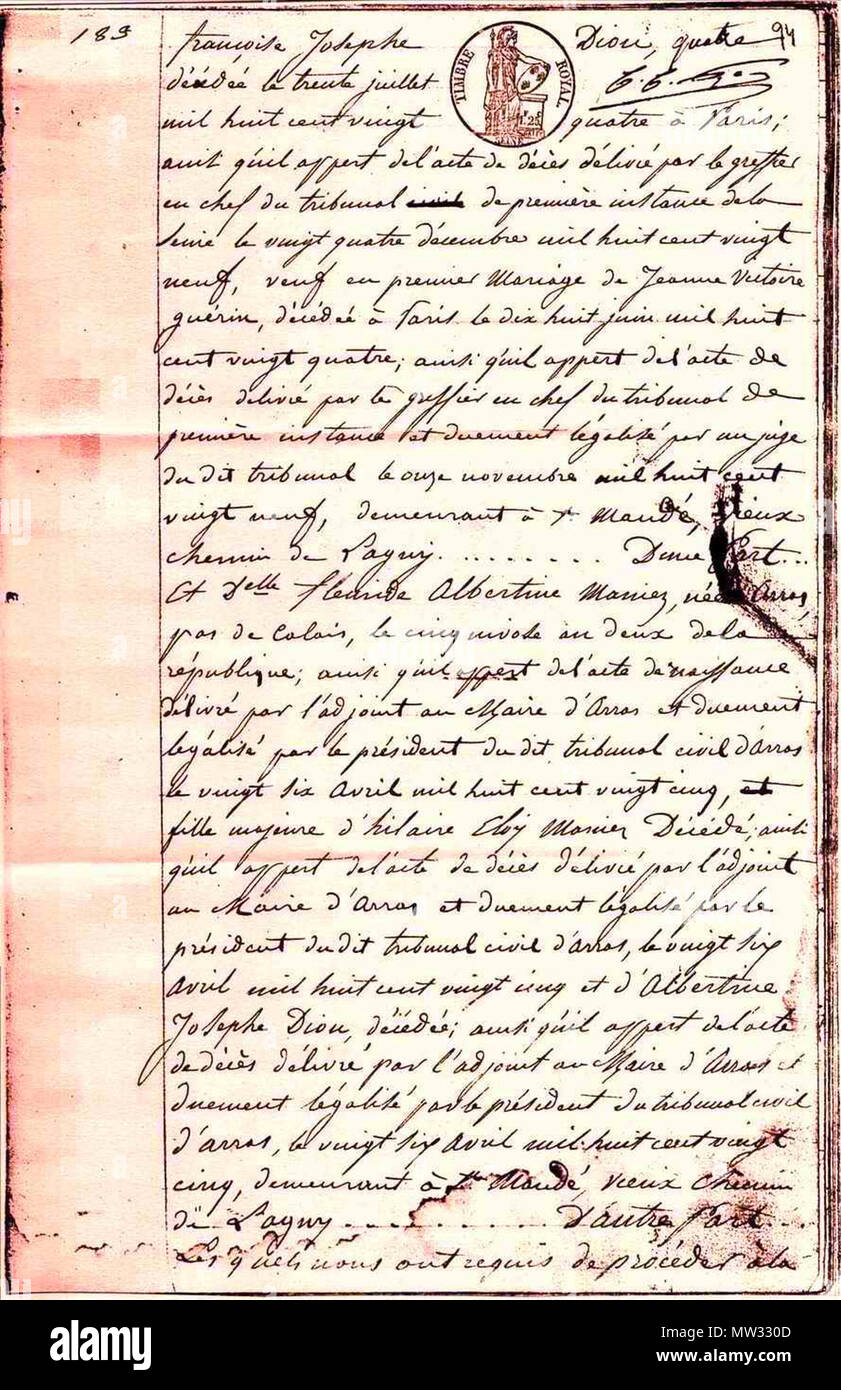 183
94
françoise Josephe Diou, quatre
décédée le trente juillet
TIMBRE ROYAL
1f 25c
SEINE
mil huit cent vingt quatre à Paris;
ainsi qu'il appert de l'acte de décès délivré par le greffier
en chef du tribunal civil de première instance de la
Seine le vingt quatre décembre mil huit cent vingt
neuf, veuf en premier Mariage de Jeanne Victoire
guérin, décédée à Paris le dix huit juin mil huit
cent vingt quatre; ainsi qu'il appert de l'acte de
décès délivré par le greffier en chef du tribunal de
première instance et duement légalisé par un juge
du dit tribunal le onze novembre mil huit cent
vingt neuf, demeurant à St Mandé, vieux
chemin de Lagny. . . . . . . . . D'une Part...
Et Delle fléuride Albertine Maniez, née à Arras,
pas de Calais, le cinq nivose an deux de la
république; ainsi qu'il appert de l'acte de naissance
délivré par l'adjoint au Maire d'Arras et duement
légalisé par le président du dit tribunal civil d'arras
le vingt six Avril mil huit cent vingt cinq, et
fille majeure d'hilaire Eloy Maniez Décédé; ainsi
qu'il appert de l'acte de décès délivré par l'adjoint
au Maire d'Arras, et duement légalisé par le
président du dit tribunal civil d'arras, le vingt six
Avril mil huit cent vingt cinq et d'Albertine
Josephe Diou, décédée; ainsi qu'il appert de l'acte
de décès délivré par l'adjoint au Maire d'Arras et
duement légalisé par le président du tribunal civil
d'arras, le vingt six Avril mil huit cent vingt
cinq, demeurant à St Mandé, vieux chemin
de Lagny . . . . . . . . . D'autre Part . .
Les quels nous ont requis de procéder à la
alamy
Image ID: MW330D
www.alamy.com